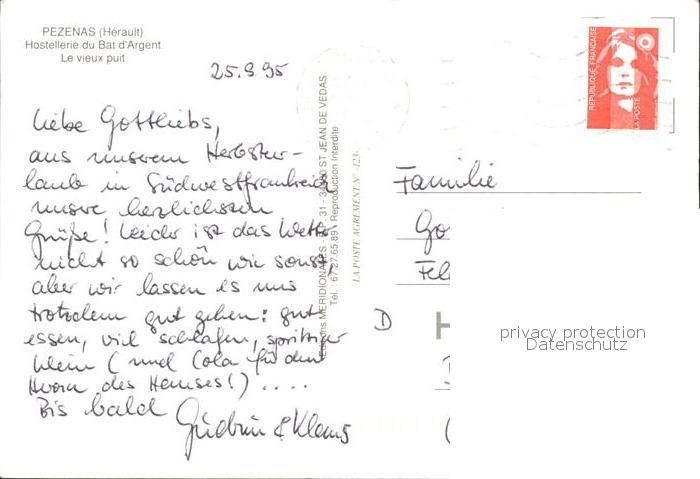 PEZENAS (Hérault)
Hostellerie du Bat d'Argent
Le vieux puit
25.9.95
Liebe Gottliebs,
aus unserem Herbstur-
laub in Südwestfrankreich
unsre herzlichsten
Grüße! Leider ist das Wetter
nicht so schön wie sonst,
aber wir lassen es uns
trotzdem gut gehen: gut
essen, viel schlafen, spritziger
Wein (und Cola für den
Herrn des Hauses!) ....
Bis bald
Gudrun & Klaus
MERIDIONALES - 31 - ST JEAN DE VEDAS
Tél. : 67.27.65.89 - Reproduction Interdite
LA POSTE AGREMENT N° 123-
REPUBLIQUE FRANÇAISE
LA POSTE
Familie
Go
Fel
D
H
privacy protection
Datenschutz